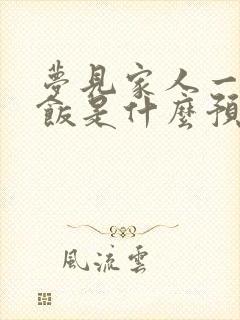 夢見家人一
飯是什麼預
風流雲